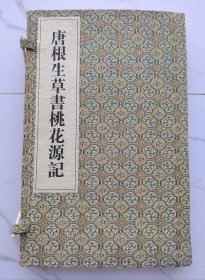 唐根生草書桃花源記